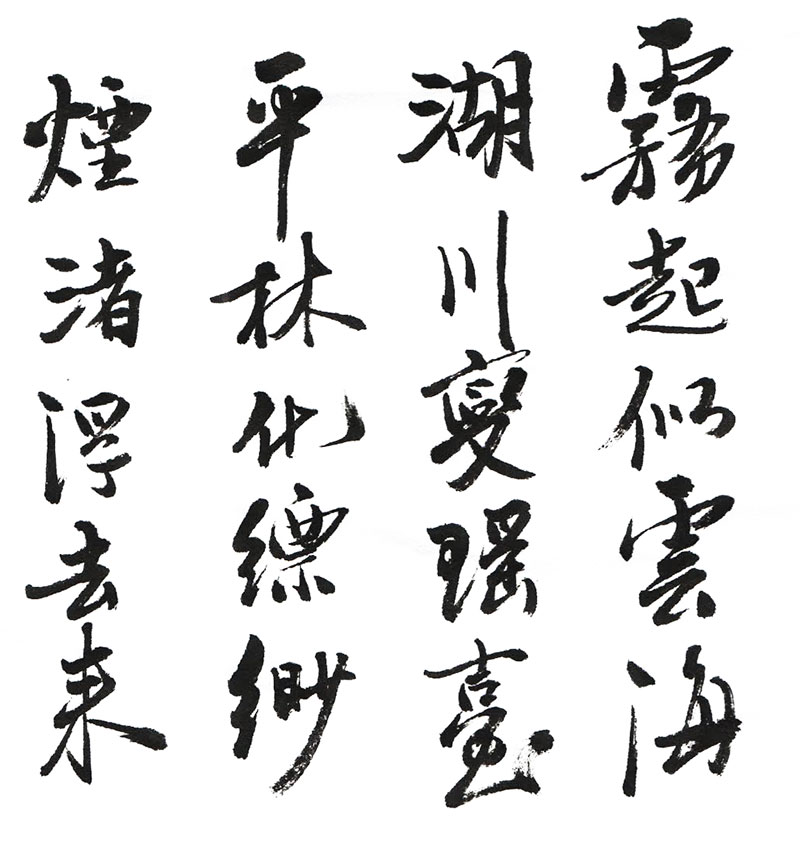 霧起似雲海
湖川變瑶臺
平林化縹緲
煙渚浮去来